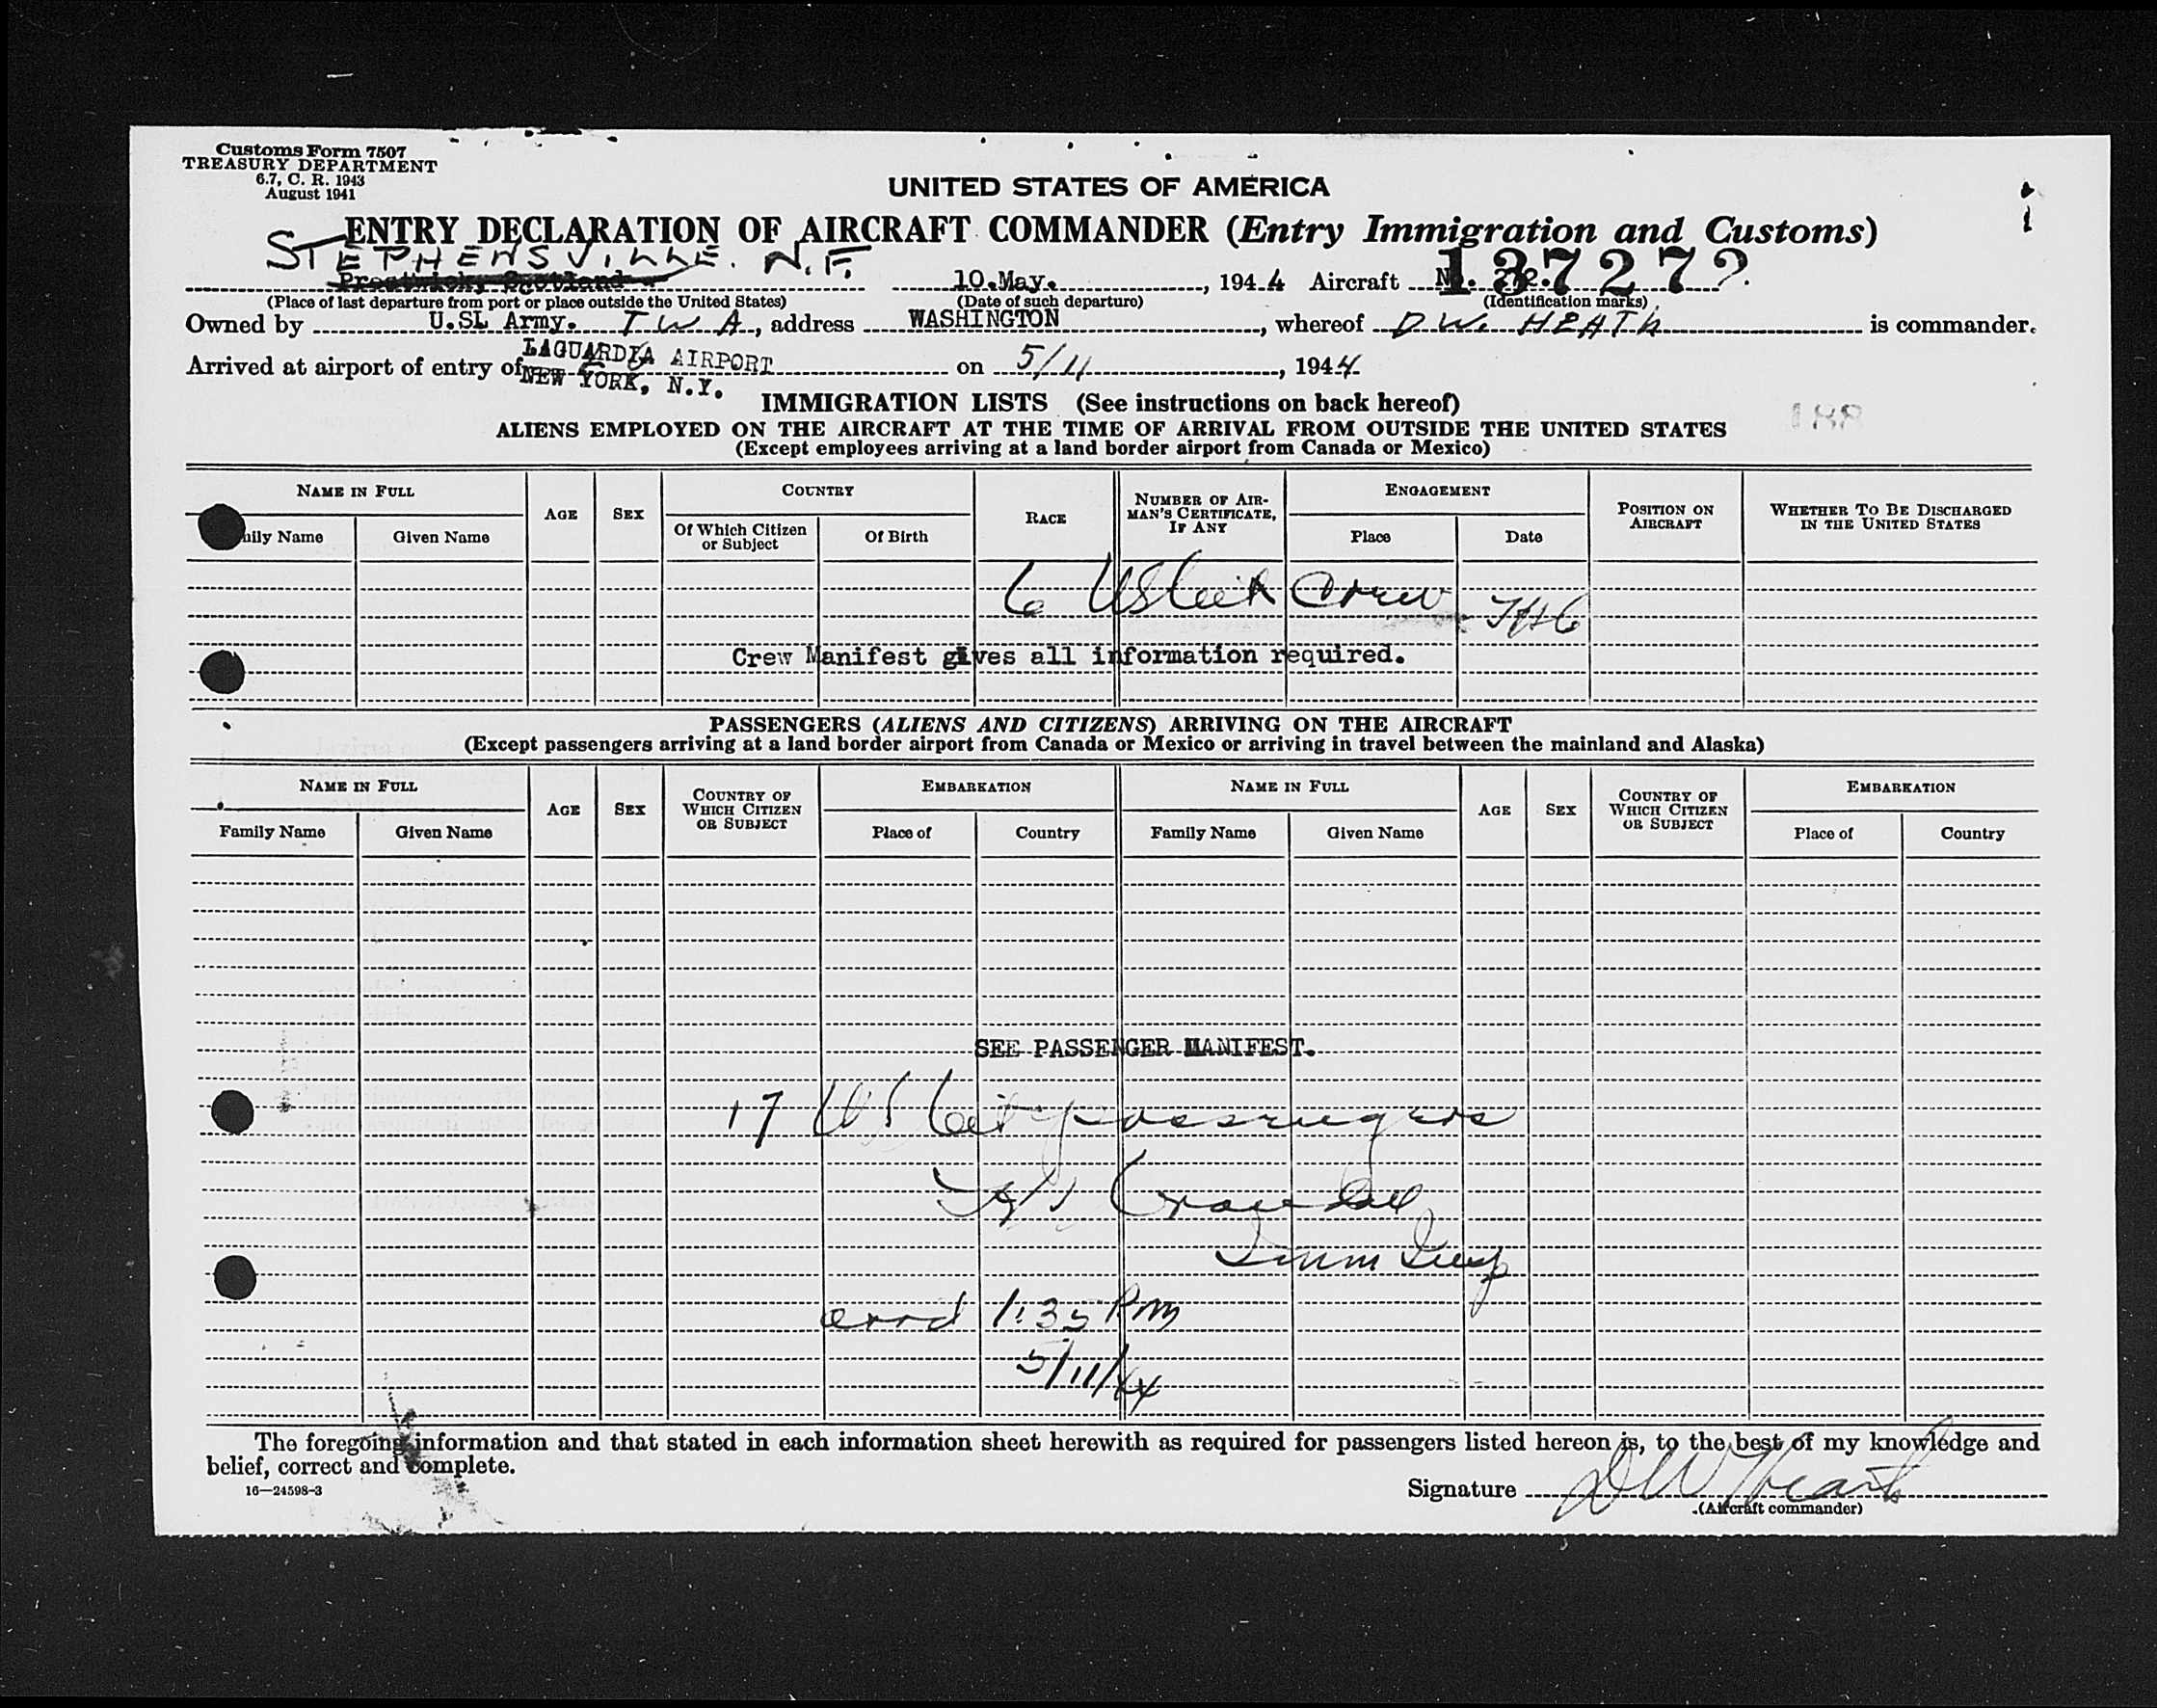 Customs Form 7507
TREASURY DEPARTMENT
6.7, C. R. 1943
August 1941
UNITED STATES OF AMERICA
ENTRY DECLARATION OF AIRCRAFT COMMANDER (Entry Immigration and Customs)
STEPHENSVILLE. N.F.
Prestwick, Scotland 10.May. , 1944 Aircraft No. 137272
(Place of last departure from port or place outside the United States) (Date of such departure) (Identification marks)
Owned by U.SL Army. T W A , address WASHINGTON , whereof D.W. HEATH is commander.
Arrived at airport of entry of LAGUARDIA AIRPORT on 5/11 , 1944
NEW YORK, N.Y.
IMMIGRATION LISTS (See instructions on back hereof)
188
ALIENS EMPLOYED ON THE AIRCRAFT AT THE TIME OF ARRIVAL FROM OUTSIDE THE UNITED STATES
(Except employees arriving at a land border airport from Canada or Mexico)
NAME IN FULL AGE SEX COUNTRY RACE NUMBER OF AIRMAN'S CERTIFICATE, IF ANY ENGAGEMENT POSITION ON AIRCRAFT WHETHER TO BE DISCHARGED IN THE UNITED STATES
ily Name Given Name Of Which Citizen or Subject Of Birth Place Date
6 US Cit Crew
Crew Manifest gives all information required.
PASSENGERS (ALIENS AND CITIZENS) ARRIVING ON THE AIRCRAFT
(Except passengers arriving at a land border airport from Canada or Mexico or arriving in travel between the mainland and Alaska)
NAME IN FULL AGE SEX COUNTRY OF WHICH CITIZEN OR SUBJECT EMBARKATION NAME IN FULL AGE SEX COUNTRY OF WHICH CITIZEN OR SUBJECT EMBARKATION
Family Name Given Name Place of Country Family Name Given Name Place of Country
SEE PASSENGER MANIFEST.
17 US Cit passengers
Imm Insp
arrd 1:35 Pm
5/11/44
The foregoing information and that stated in each information sheet herewith as required for passengers listed hereon is, to the best of my knowledge and
belief, correct and complete.
16—24598-3
Signature DW Heath
(Aircraft commander)